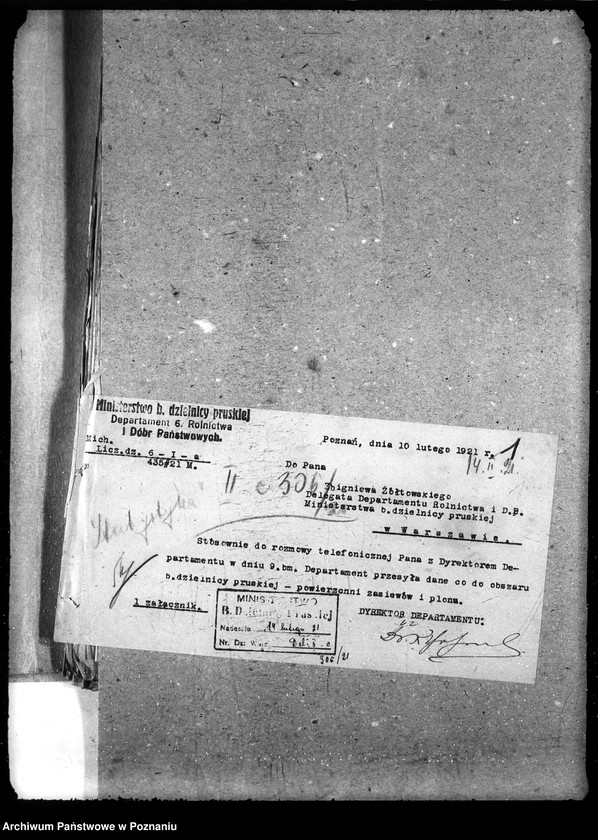 Ministerstwo b. dzielnicy pruskiej
Departament 6. Rolnictwa
i Dóbr Państwowych.
Mich.
Licz.dz. 6 - I - a
435#21 M.
Poznań, dnia 10 lutego 1921 r.
14.II.21.
II c 306/
Do Pana
Zbigniewa Żółtowskiego
Delegata Departamentu Rolnictwa i D.P.
Ministerstwa b.dzielnicy pruskiej
w Warszawie.
Statystyka
Stósownie do rozmowy telefonicznej Pana z Dyrektorem De-
partamentu w dniu 9.bm. Departament przesyła dane co do obszaru
b.dzielnicy pruskiej - powierzchni zasiewów i plona.
1 załącznik.
DYREKTOR DEPARTAMENTU:
MINISTERSTWO
B. Dzielnicy Pruskiej
Nadeszło 14 lutego 21
Nr. Dz.
306/21
Archiwum Państwowe w Poznaniu